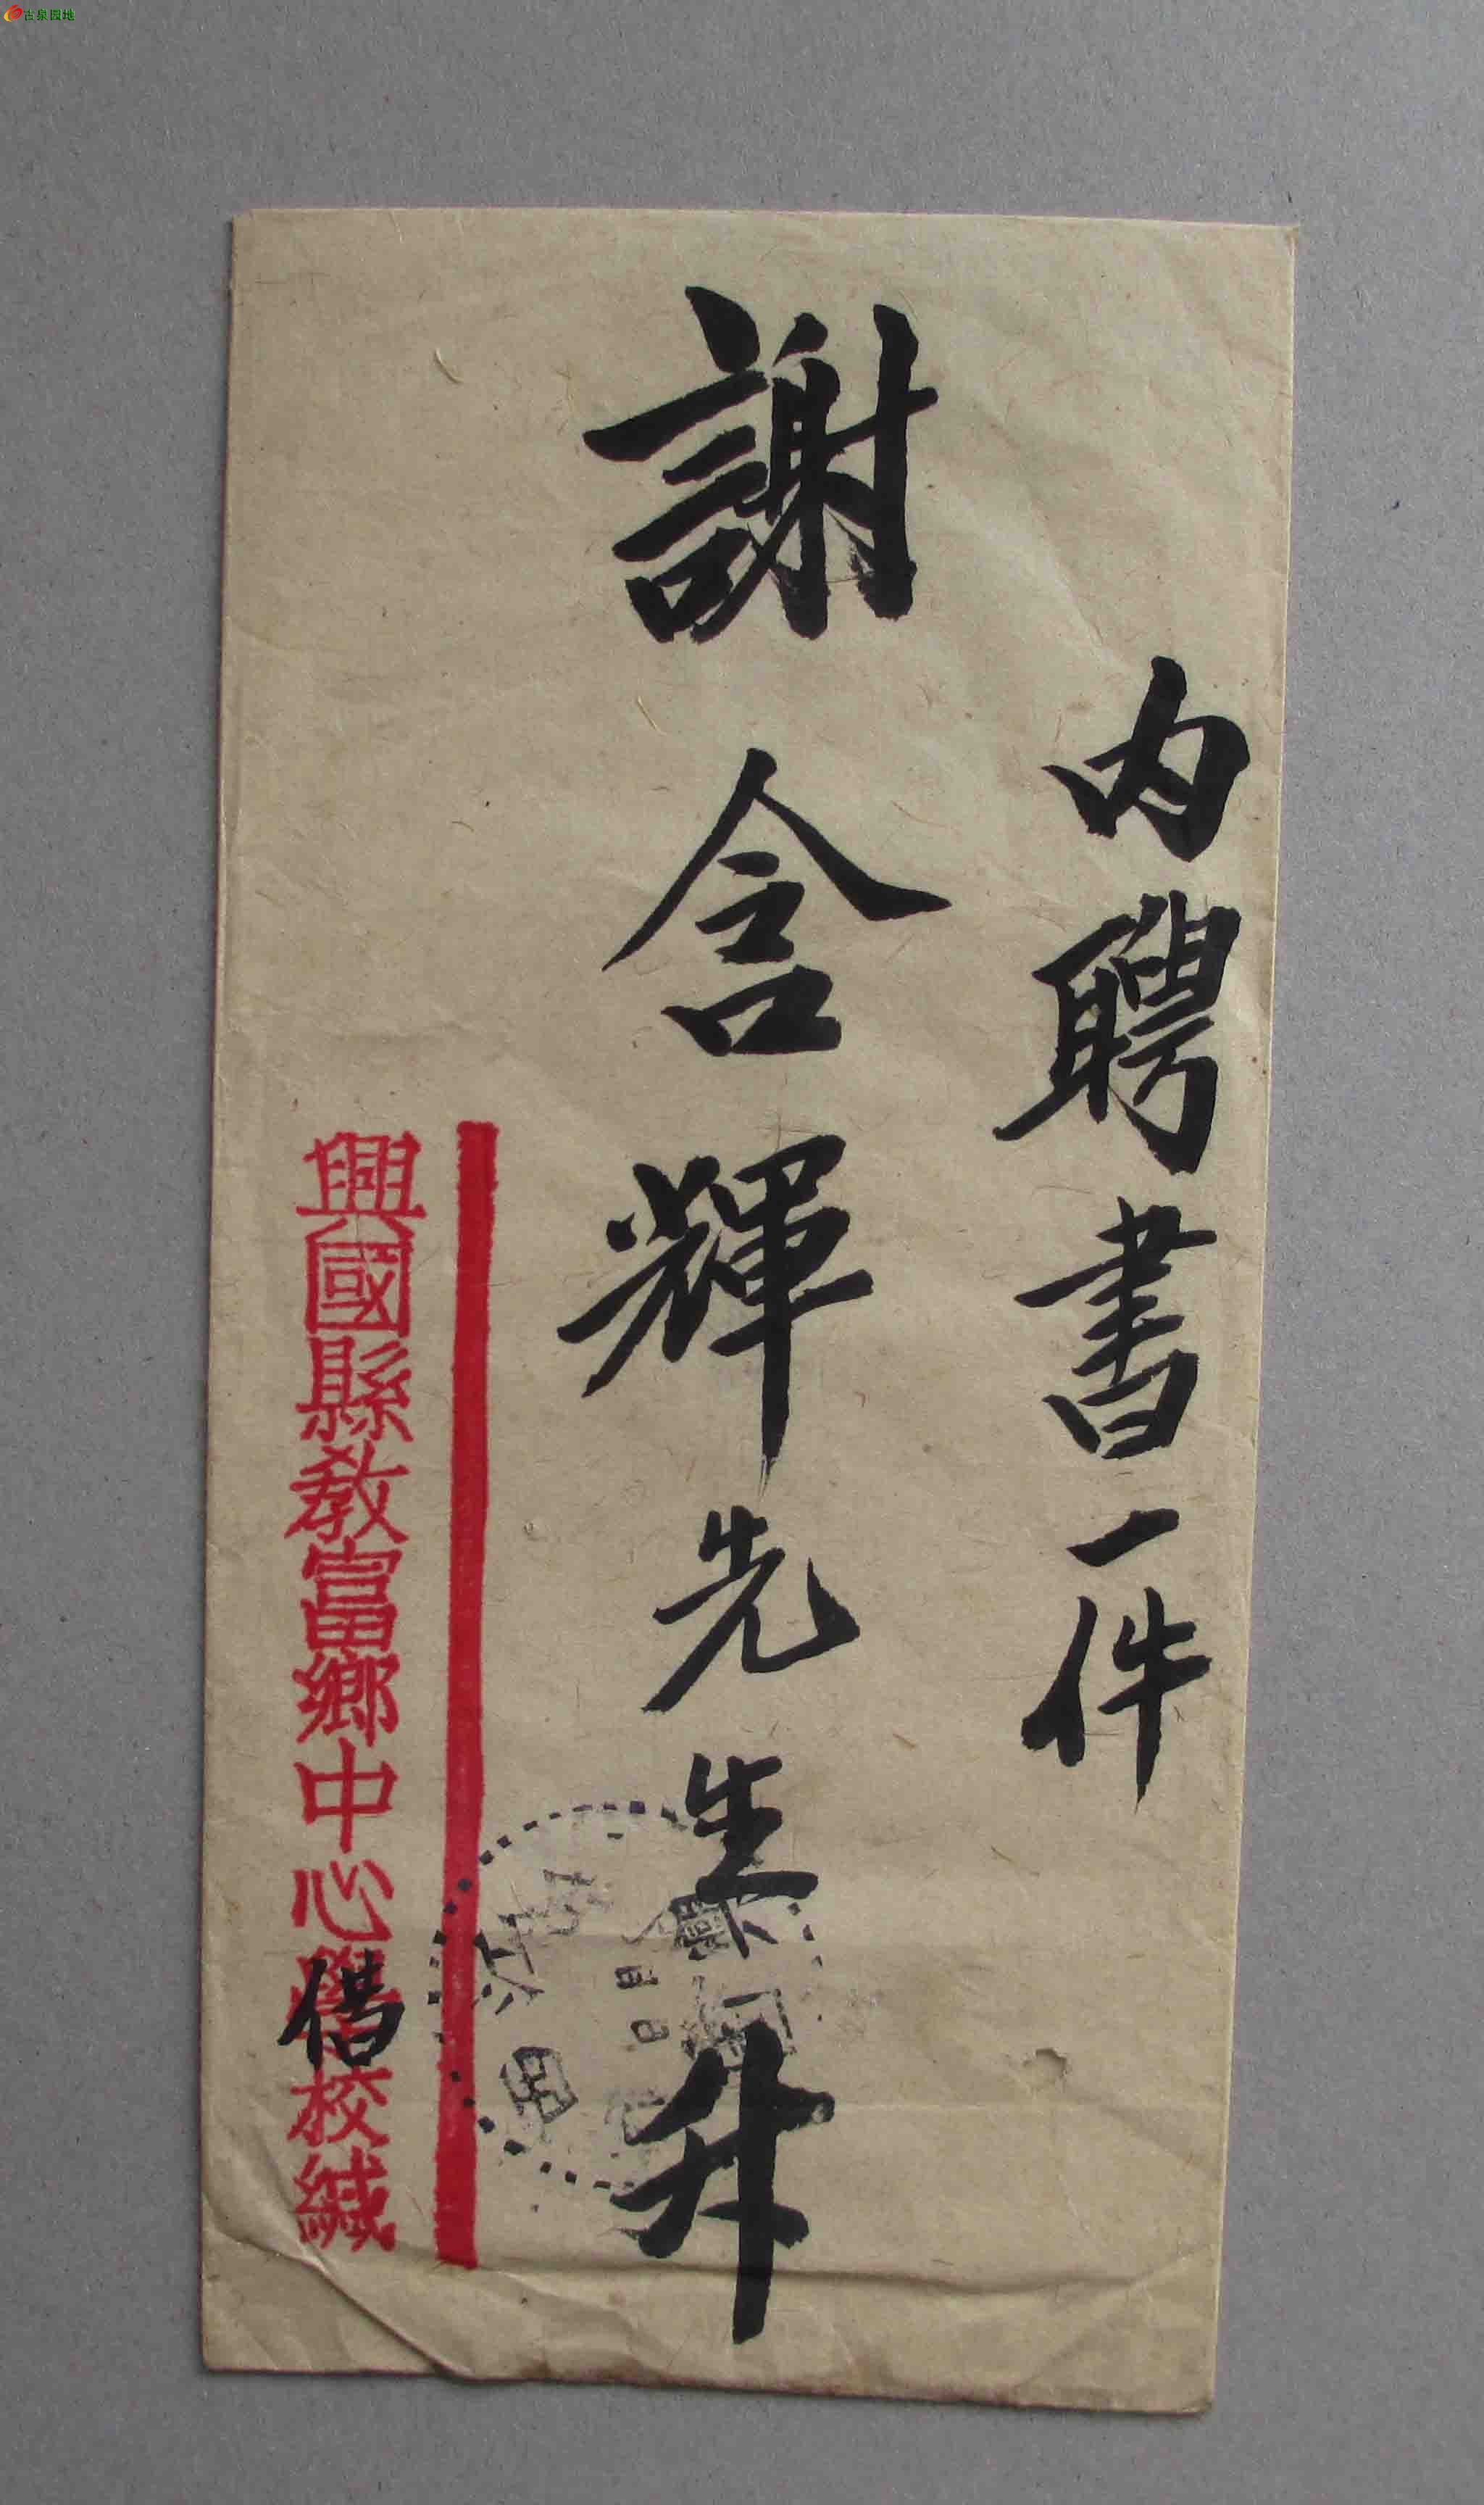 古泉园地
内聘書一件
謝含輝先生升
興國縣教富鄉中心借校緘